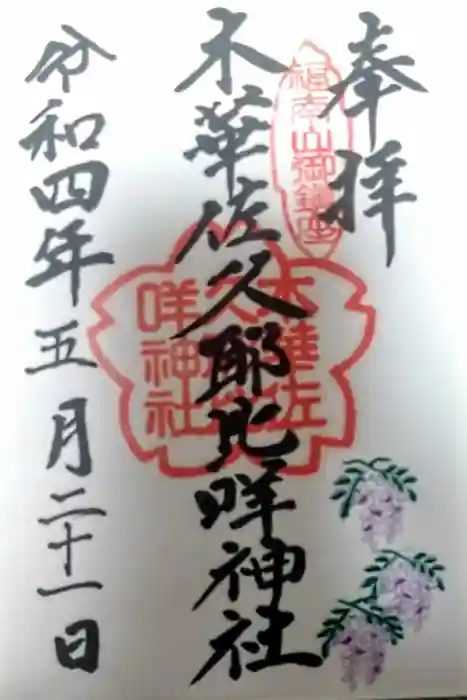 奉拝
福南山御鎮座
木華佐久耶比咩神社
木華佐久耶比咩神社
令和四年五月二十一日